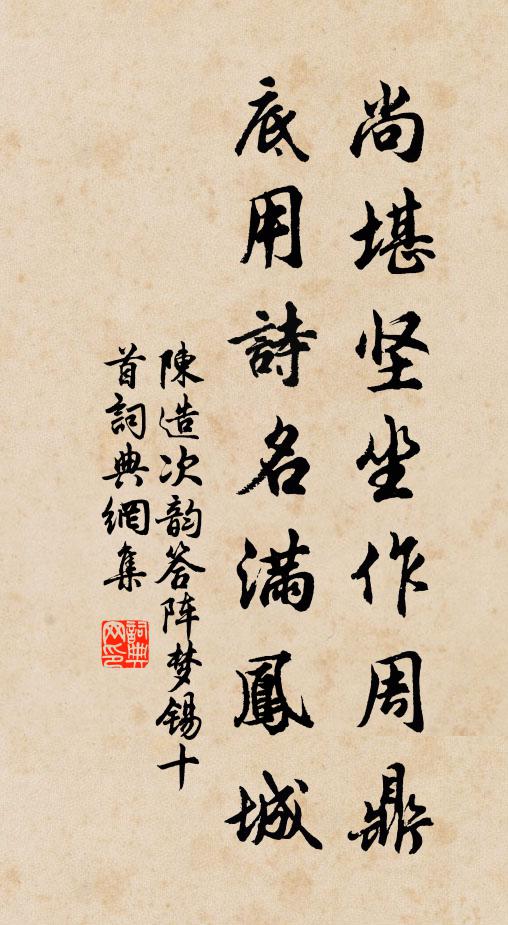 尚堪坚坐作周鼎
底用詩名滿鳳城
陳造次韵答阵梦锡十
首詞典網集
詞典
网印